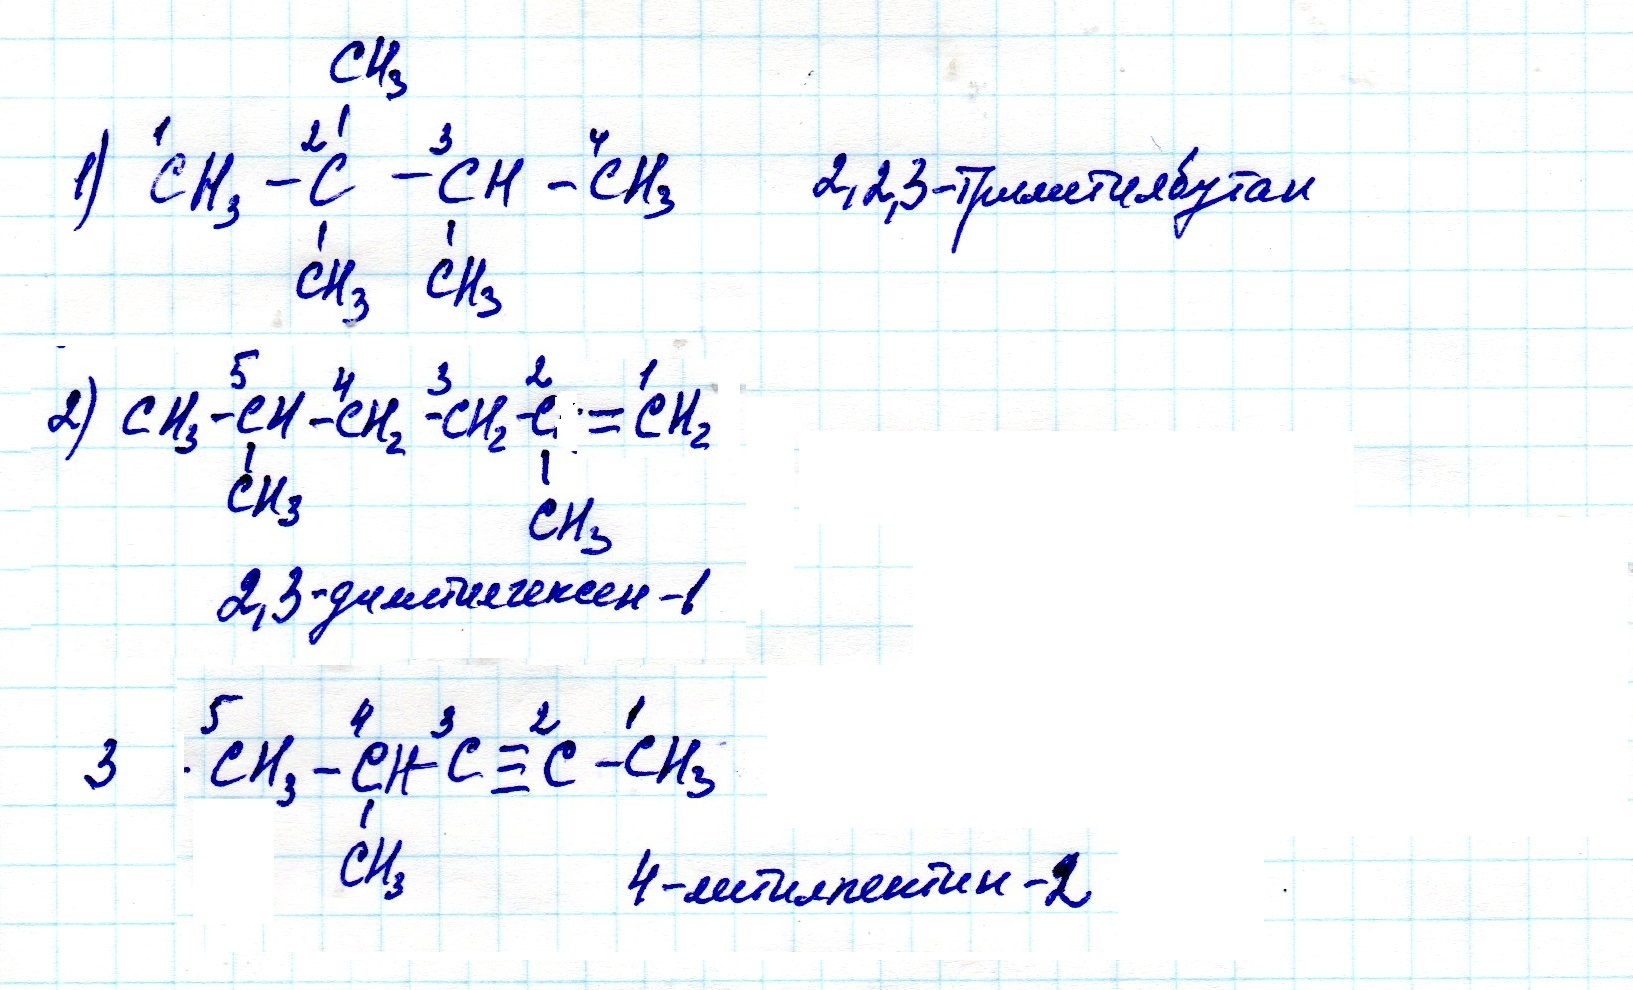 CH₃
1) ¹CH₃ – ²C – ³CH – ⁴CH₃ 2,2,3-триметилбутан
CH₃ CH₃
5 4 3 2 1
2) CH₃ – CH – CH₂ – CH₂ – C = CH₂
CH₃
CH₃
2,3-диметилгексен-1
5 4 3 2 1
3 CH₃ – CH – C ≡ C – CH₃
CH₃
4-метилпентин-2